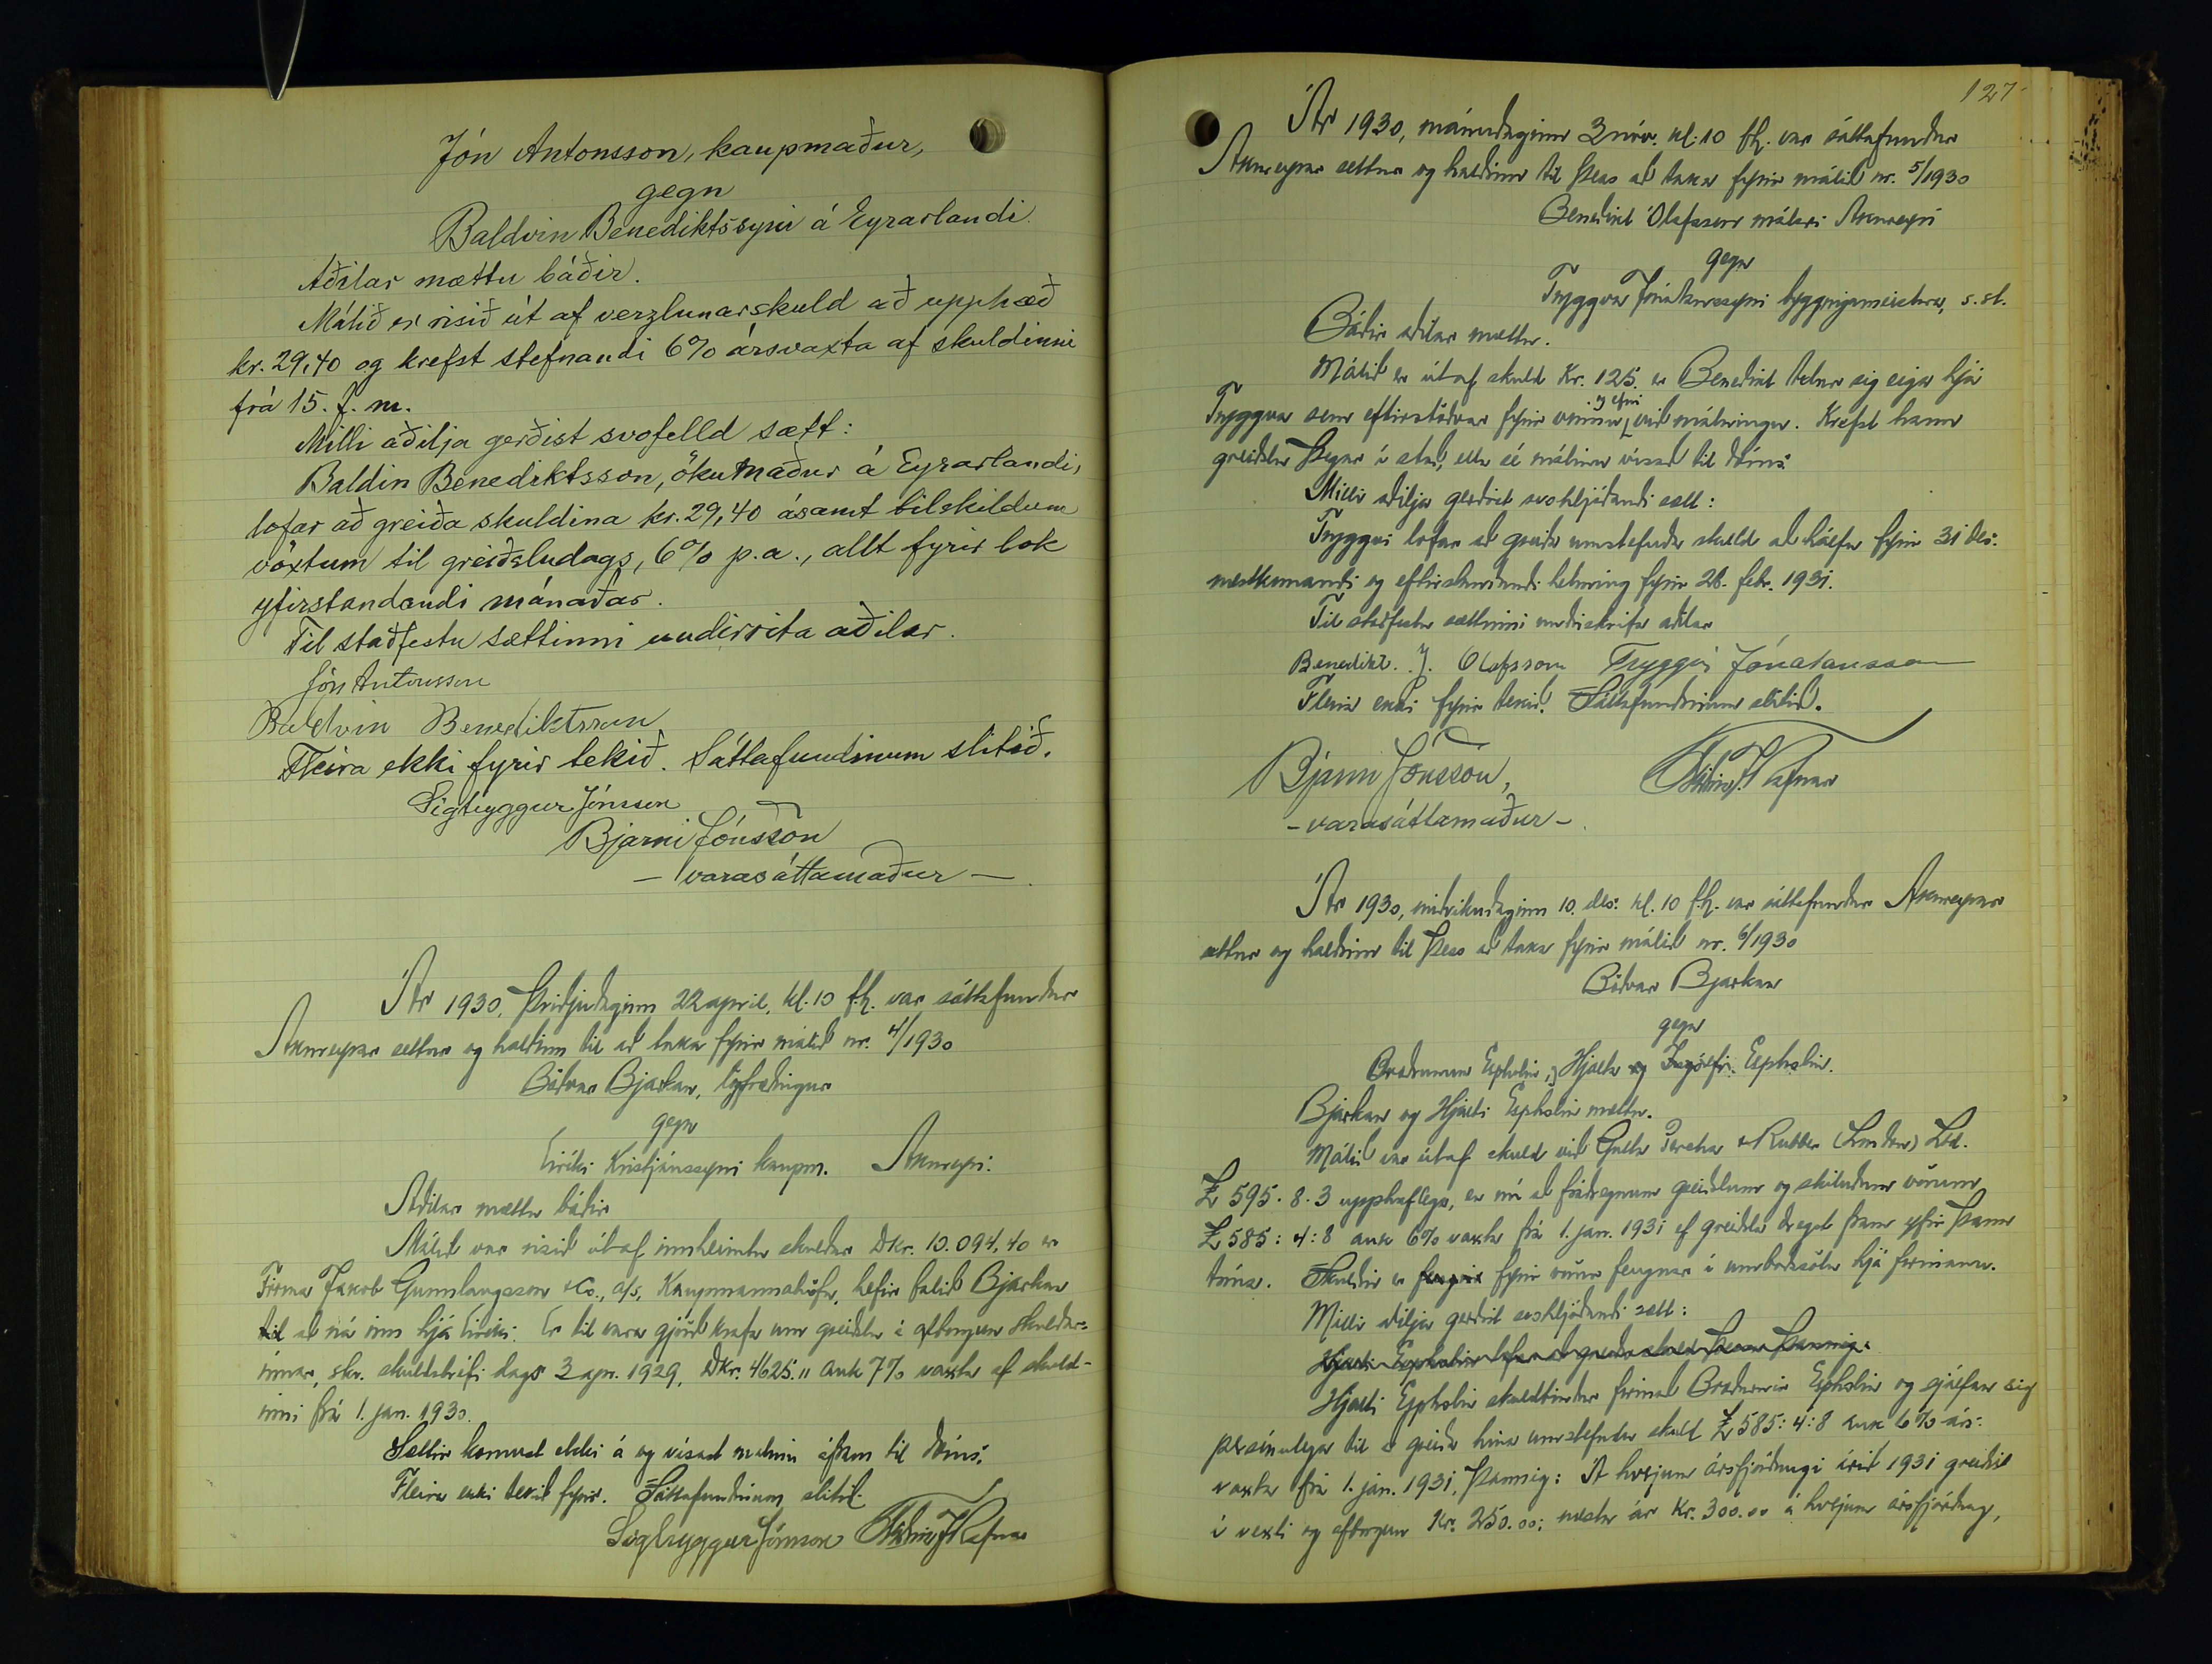 Jón Antonsson, kaupmaður,
gegn
Baldvin Benediktssyni á Eyrarlandi
Aðilar mættu báðir.
Málið er risið út af verzlunarskuld að upphæð
kr. 29,40 og krefst stefnandi 6% ársvaxta af skuldinni
frá 15. f. m.
Milli aðilja gerðist svofelld sætt:
Baldin Benediktsson, ökumaður á Eyrarlandi,
lofar að greiða skuldina kr. 29,40 ásamt tilskildum
vöxtum til greiðsludags, 6% p.a., allt fyrir lok
yfirstandandi mánaðar.
Til staðfestu sættinni undirrita aðilar.
Jón Antonsson
Baldvin Benediktsson
Fleira ekki fyrir tekið. Sáttafundinum slitið.
Sigtryggur Jónsson
Bjarni Jónsson
- varasáttamaður -
Ár 1930, þriðjudaginn 22 april, kl. 10 f.h. var sáttafundur
Akureyrar settur og haldinn til að taka fyrir málið nr. 4/1930
Böðvar Bjarkan, lögfræðingur
gegn
Eiríki Kristjánssyni kaupm. Akureyri.
Aðilar mættu báðir
Málið var risið útaf innheimtu skuldar DKr. 10.094,40 er
Firma Jakob Gunnlaugsson & Co., a/s, Kaupmannahöfn, hefir falið Bjarkan
til að ná inn hjá Eiríki. Er til vara gjörð krafa um greiðslu á afborgun skuldar-
innar, skv. skuldabréfi dags 3 apr. 1929, DKr. 4625." auk 7% vaxta af skuld-
inni frá 1. jan. 1930.
Sættir komust ekki á og vísast málinu áfram til dóms.
Fleira ekki tekið fyrir. Sáttafundinum slitið.
Sigtryggur Jónsson Friðrik J Rafnar
127
Ár 1930, mánudaginn 3 nóv. kl. 10 fh. var sáttafundur
Akureyrar settur og haldinn til þess að taka fyrir málið nr. 5/1930
Benedikt Ólafsson málari Akureyri
gegn
Tryggva Jónatanssyni byggingameistara, s. st.
Báðir aðilar mættu.
Málið er útaf skuld Kr. 125. er Benedikt telur sig eiga hjá
og efni
Tryggva sem eftirstöðvar fyrir vinnu við málningu. Krefst hann
greiðslu þegar í stað, ella sé málinu vísað til dóms.
Milli aðilja gerðist svohljóðandi sætt:
Tryggvi lofar að greiða umstefnda skuld að hálfu fyrir 31 des.
næstkomandi og eftirstandandi helming fyrir 28. febr. 1931.
Til staðfestu sættinni undirskrifa aðilar
Benedikt. J. Olafsson Tryggvi Jónatansson
Fleira ekki fyrir tekið. Sáttafundinum slitið.
Bjarni Jónsson, Friðrik J Rafnar
- varasáttamaður -
Ár 1930, miðvikudaginn 10. des. kl. 10 f.h. var sáttafundur Akureyrar
settur og haldinn til þess að taka fyrir málið nr. 6/1930
Böðvar Bjarkan
gegn
Brödrunum Espholin, og Hjalta og Ingólfi Espholin.
Bjarkan og Hjalti Espholin mættu.
Málið var útaf skuld við Gutta Percha & Rubber (London) Ltd.
£ 595. 8. 3 upphaflega, er nú að frádregnum greiðslum og skiluðum vörum
£ 585: 4: 8 auk 6% vaxta frá 1. jan. 1931 ef greiðsla dregst fram yfir þann
tíma. Skuldin er fengin fyrir vörur fengnar í umboðssölu hjá firmanu.
Milli aðilja gerðist svohljóðandi sætt:
Hjalti Espholin lofar að greiða skuld þessa þannig:
Hjalti Espholin skuldbindur firmað Brödurnir Espholin og sjálfan sig
persónulega til að greiða hina umstefndu skuld £ 585: 4: 8 auk 6% árs-
vaxta frá 1. jan. 1931, þannig: Á hverjum ársfjórðungi árið 1931 greiðist
í vexti og afborgun Kr. 250.00; næsta ár Kr. 300.00 á hverjum ársfjórðung,